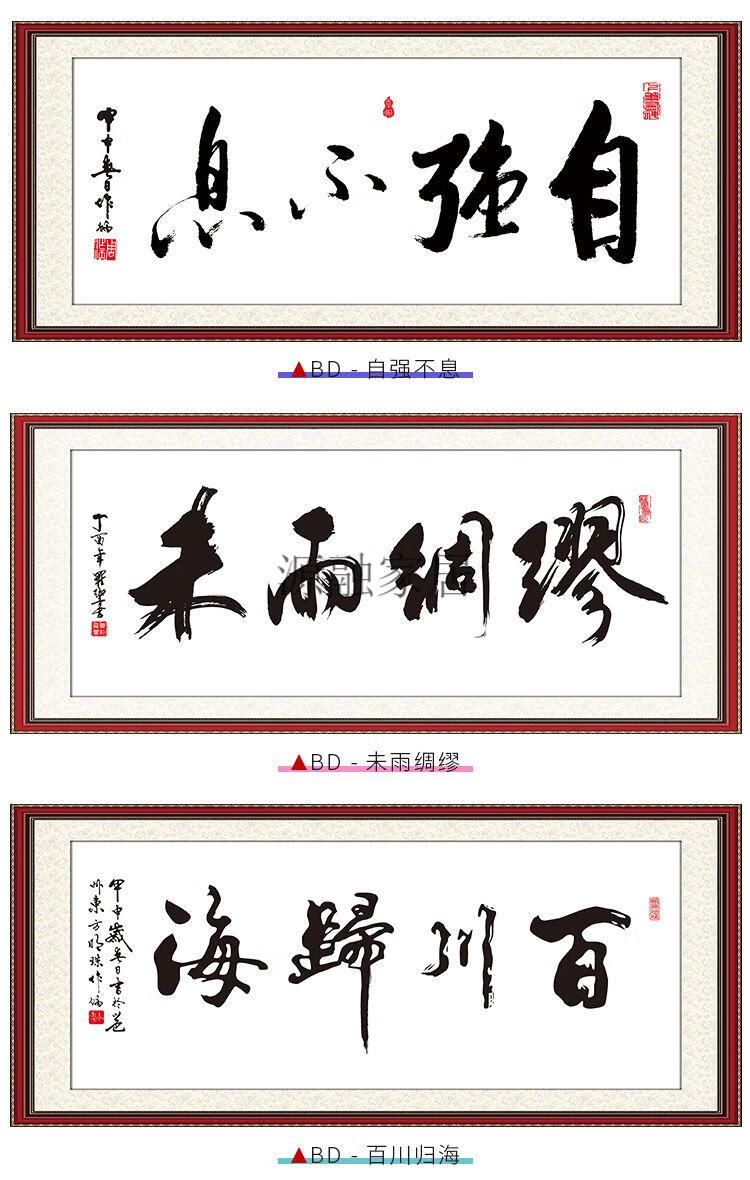 自强不息
甲申春日
▲BD - 自强不息
未雨綢繆
丁酉年
源融家居
▲BD - 未雨绸缪
百川歸海
甲申歲春日書於邕
州東方明珠
▲BD - 百川归海